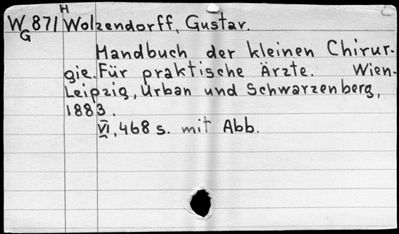 H
W 871 Wolzendorff, Gustav.
G
Handbuch der kleinen Chirur-
gie. Für praktische Ärzte. Wien-
Leipzig, Urban und Schwarzenberg,
1883.
VI, 468 s. mit Abb.